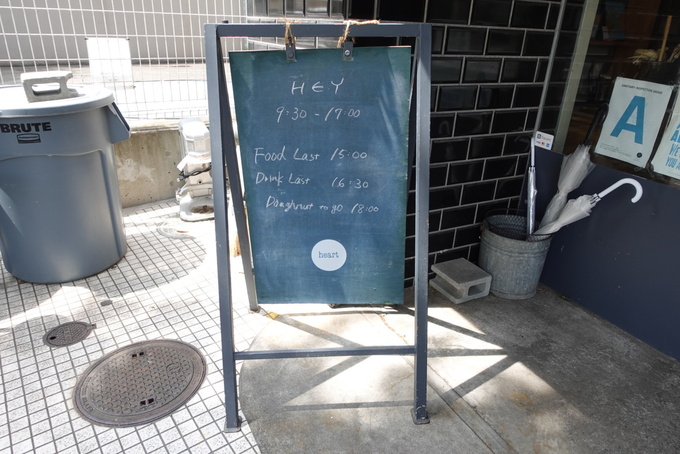 HEY
9:30 - 17:00
Food Last 15:00
Drink Last 16:30
Doughnut to go 18:00
heart
BRUTE
A